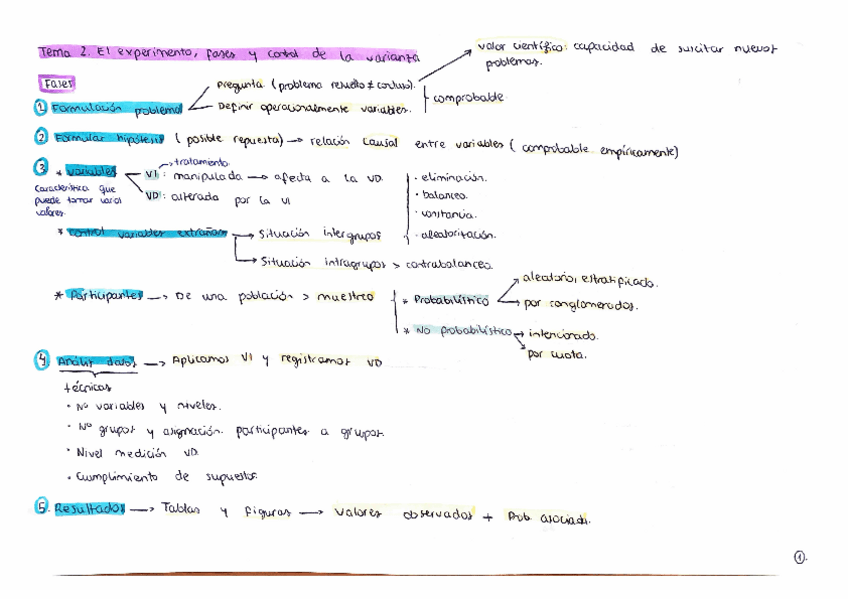 Tema 2. El experimento, fases y control de la varianza
Fases
valor científico: capacidad de suscitar nuevos problemas.
1 Formulación problema
Pregunta (problema resuelto ≠ confuso).
Definir operacionalmente variables.
comprobable
2 Formular hipótesis (posible repuesta) → relación causal entre variables (comprobable empíricamente)
3 * variables
Característica que
puede tomar varios
valores.
→ tratamiento
VI: manipulada → afecta a la VD
VD: alterada por la VI
* control variables extrañas
→ Situación intergrupos
· eliminación.
· balanceo.
· constancia.
· aleatorización.
→ Situación intragrupos > contrabalanceo
* Participantes → De una población > muestreo
* Probabilístico
aleatorio, estratificado.
por conglomerados.
* No probabilístico → intencionado.
por cuota.
4. Análisis datos → Aplicamos VI y registramos VD
técnicas
· Nº variables y niveles.
· Nº grupos y asignación participantes a grupos.
· Nivel medición VD
· Cumplimiento de supuestos.
5. Resultados → Tablas y figuras → valores observados + Prob. asociada.
1.